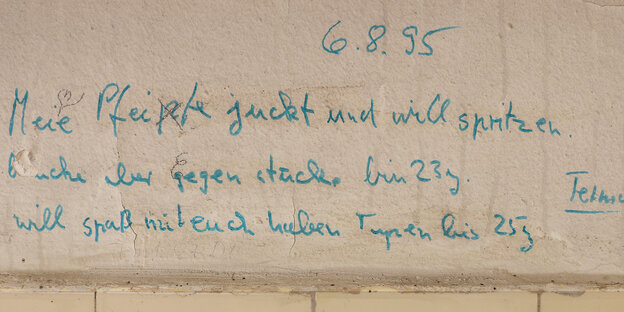 6.8.95
Meie Pfeife juckt und will spritzen.
aber gegenstück. bin 23j.
will spaß mit euch haben Typen bis 25j